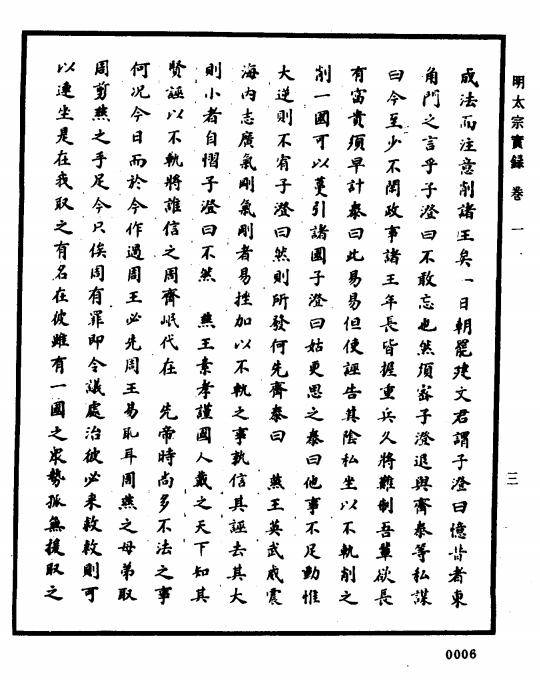 明太宗實錄 卷一
三
成法而注意削諸王矣一日朝罷建文君謂子澄曰憶昔者東
角門之言乎子澄曰不敢忘也然須密子澄退與齊泰等私謀
曰今至少不閑政事諸王年長皆握重兵久將難制吾輩欲長
有富貴須早計泰曰此易易但使誣告其陰私坐以不軌削之
削一國可以蔓引諸國子澄曰姑更思之泰曰他事不足動惟
大逆則不宥子澄曰然則所發何先齊泰曰 燕王英武威震
海內志廣氣剛氣剛者易挫加以不軌之事孰信其誣去其大
則小者自慴子澄曰不然 燕王素孝謹國人戴之天下知其
賢誣以不軌將誰信之周齊岷代在 先帝時尚多不法之事
何況今日而於今作過周王必先周王易恥耳周燕之母弟取
周剪燕之手足今只俟周有罪即令議處治彼必来救救則可
以連坐是在我取之有名在彼雖有一國之衆勢孤無援取之
0006